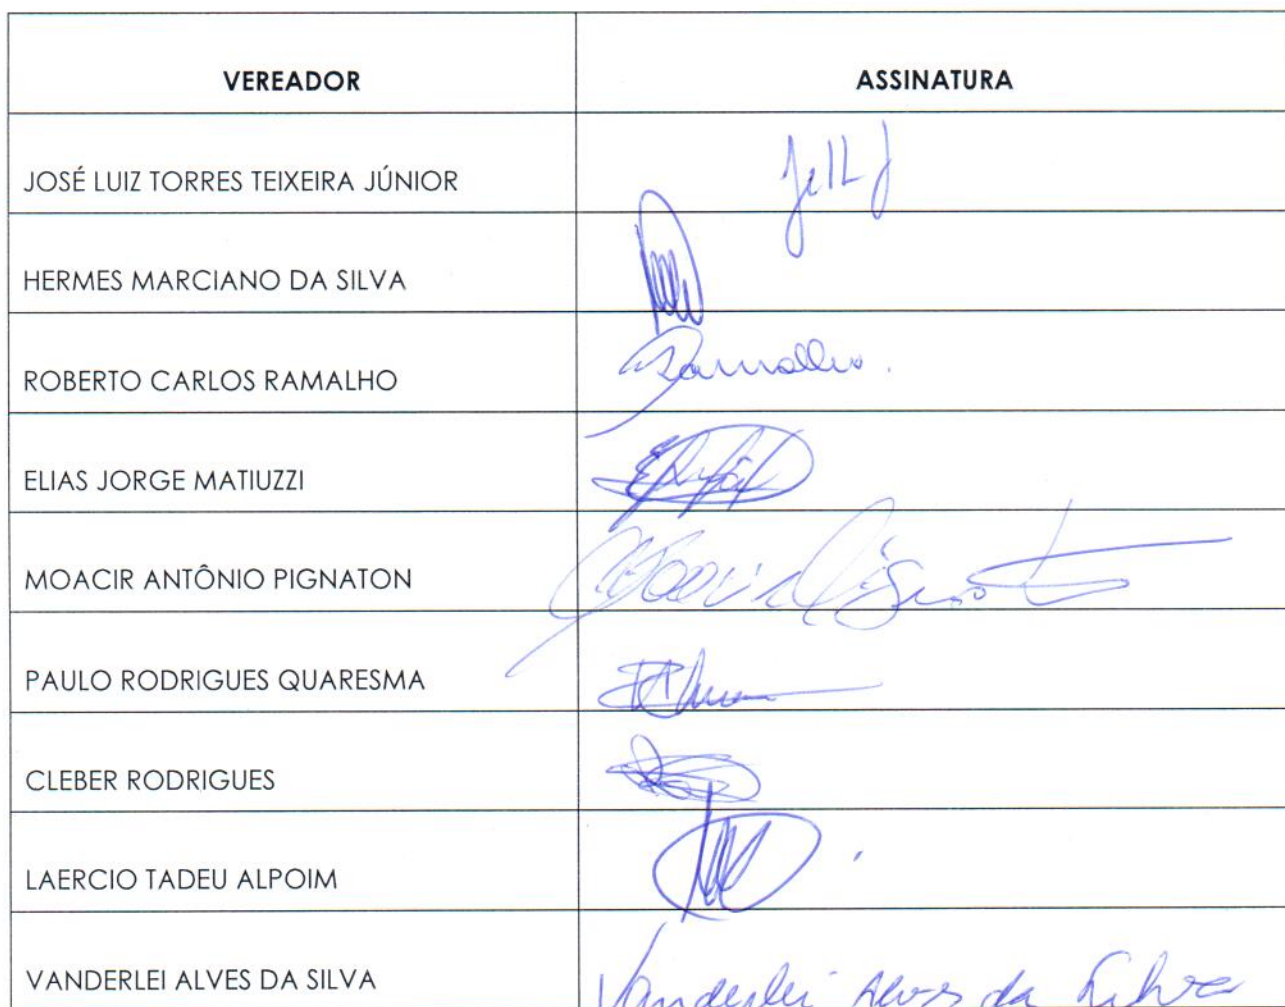 VEREADOR ASSINATURA
JOSÉ LUIZ TORRES TEIXEIRA JÚNIOR
HERMES MARCIANO DA SILVA
ROBERTO CARLOS RAMALHO Ramalho.
ELIAS JORGE MATIUZZI
MOACIR ANTÔNIO PIGNATON Moacir Pignaton
PAULO RODRIGUES QUARESMA
CLEBER RODRIGUES
LAERCIO TADEU ALPOIM
VANDERLEI ALVES DA SILVA Vanderlei Alves da Silva